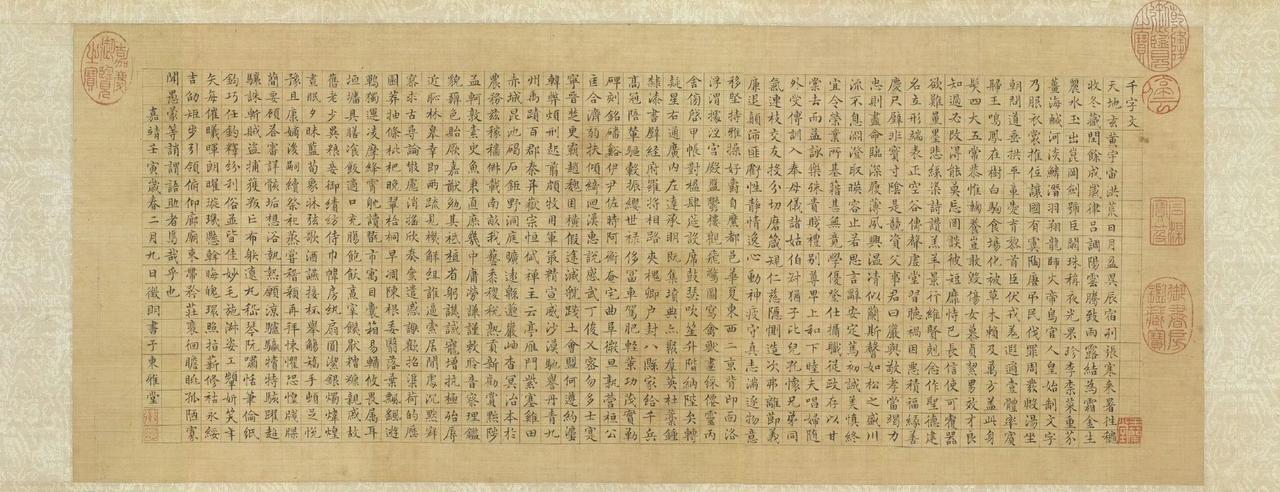 乾隆御覽之寶
石渠寶笈
御書房鑑藏寶
千字文
天地玄黃宇宙洪荒日月盈昃辰宿列張寒來暑往穐
收冬藏閏餘成歲律呂調陽雲騰致雨露結為霜金生
麗水玉出崑岡劍號巨闕珠稱夜光果珍李柰菜重芥
薑海鹹河淡鱗潛羽翔龍師火帝鳥官人皇始制文字
乃服衣裳推位讓國有虞陶唐弔民伐罪周發殷湯坐
朝問道垂拱平章愛育黎首臣伏戎羌遐邇壹體率賓
歸王鳴鳳在樹白駒食場化被草木賴及萬方蓋此身
髮四大五常恭惟鞠養豈敢毀傷女慕貞絜男效才良
知過必改得能莫忘罔談彼短靡恃己長信使可覆器
欲難量墨悲絲染詩讚羔羊景行維賢剋念作聖德建
名立形端表正空谷傳聲虛堂習聽禍因惡積福緣善
慶尺璧非寶寸陰是競資父事君曰嚴與敬孝當竭力
忠則盡命臨深履薄夙興溫凊似蘭斯馨如松之盛川
流不息淵澄取暎容止若思言辭安定篤初誠美慎終
宜令榮業所基籍甚無竟學優登仕攝職從政存以甘
棠去而益詠樂殊貴賤禮別尊卑上和下睦夫唱婦隨
外受傅訓入奉母儀諸姑伯叔猶子比兒孔懷兄弟同
氣連枝交友投分切磨箴規仁慈隱惻造次弗離節義
廉退顛沛匪虧性靜情逸心動神疲守真志滿逐物意
移堅持雅操好爵自縻都邑華夏東西二京背邙面洛
浮渭據涇宮殿盤鬱樓觀飛驚圖寫禽獸畫綵僊靈丙
舍傍啓甲帳對楹肆筵設席鼓瑟吹笙升階納陛弁轉
疑星右通廣內左達承明既集墳典亦聚群英杜稾鍾
隸漆書壁經府羅將相路俠槐卿戶封八縣家給千兵
高冠陪輦驅轂振纓世祿侈富車駕肥輕策功茂實勒
碑刻銘磻谿伊尹佐時阿衡奄宅曲阜微旦孰營桓公
匡合濟弱扶傾綺迴漢惠說感武丁俊乂密勿多士寔
寧晉楚更霸趙魏困橫假途滅虢踐土會盟何遵約灋
韓弊煩刑起翦頗牧用軍最精宣威沙漠馳譽丹青九
州禹蹟百郡秦并嶽宗恒岱禪主云亭雁門紫塞雞田
赤城昆池碣石鉅野洞庭曠遠緜邈巖岫杳冥治本於
農務茲稼穡俶載南畝我藝黍稷稅熟貢新勸賞黜陟
孟軻敦素史魚秉直庶幾中庸勞謙謹敕聆音察理鑑
貌辨色貽厥嘉猷勉其祗植省躬譏誡寵增抗極殆辱
近恥林皋幸即兩疏見機解組誰逼索居閒處沉默寂
寥求古尋論散慮逍遙欣奏累遣慼謝歡招渠荷的歷
園莽抽條枇杷晚翠梧桐早凋陳根委翳落葉飄颻遊
鵾獨運凌摩絳霄耽讀翫市寓目囊箱易輶攸畏屬耳
垣墻具膳飡飯適口充腸飽飫烹宰饑厭糟糠親戚故
舊老少異糧妾御績紡侍巾帷房紈扇圓潔銀燭煒煌
晝眠夕寐藍筍象牀弦歌酒讌接杯舉觴矯手頓足悅
豫且康嫡後嗣續祭祀蒸嘗稽顙再拜悚懼恐惶牋牒
簡要顧答審詳骸垢想浴執熱願涼驢騾犢特駭躍超
驤誅斬賊盜捕獲叛亡布射遼丸嵇琴阮嘯恬筆倫紙
鈞巧任釣釋紛利俗並皆佳妙毛施淑姿工顰妍笑年
矢每催曦暉朗曜琁璣懸斡晦魄環照指薪修祜永綏
吉劭矩步引領俯仰廊廟束帶矜莊徘徊瞻眺孤陋寡
聞愚蒙等誚謂語助者焉哉乎也
嘉靖壬寅歲春二月九日徵明書于東雅堂
嘉慶御覽之寶